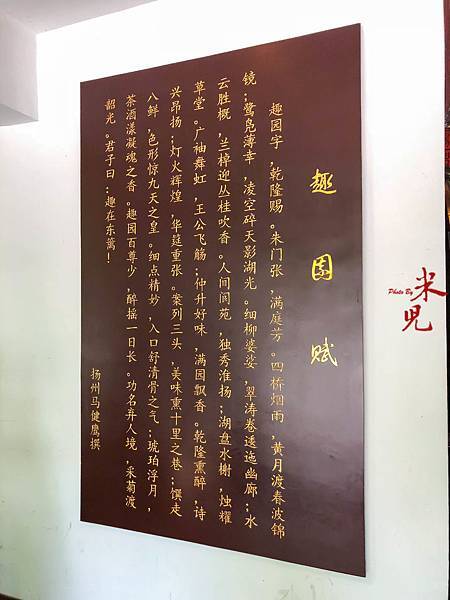 趣园赋
趣园字，乾隆赐。朱门张，满庭芳。四桥烟雨，黄月渡春波锦
镜；鹭凫薄幸，凌空碎天影湖光。细柳婆娑，翠涛卷逶迤幽廊；水
云胜概，兰棹迎丛桂吹香。人间阆苑，独秀淮扬；湖盘水榭，烛耀
草堂。广袖舞虹，王公飞觞；仲升好味，满园飘香。乾隆熏醉，诗
兴昂扬；灯火辉煌，华筵重张。案列三头，美味熏十里之巷；馔走
八鲜，色形惊九天之皇。细点精妙，入口舒清骨之气；琥珀浮月，
茶酒漾凝魂之香。趣园百尊少，醉摇一日长。功名弃人境，采菊渡
韶光。君子曰：趣在东篱！
扬州马健鹰撰
Photo By
米兒